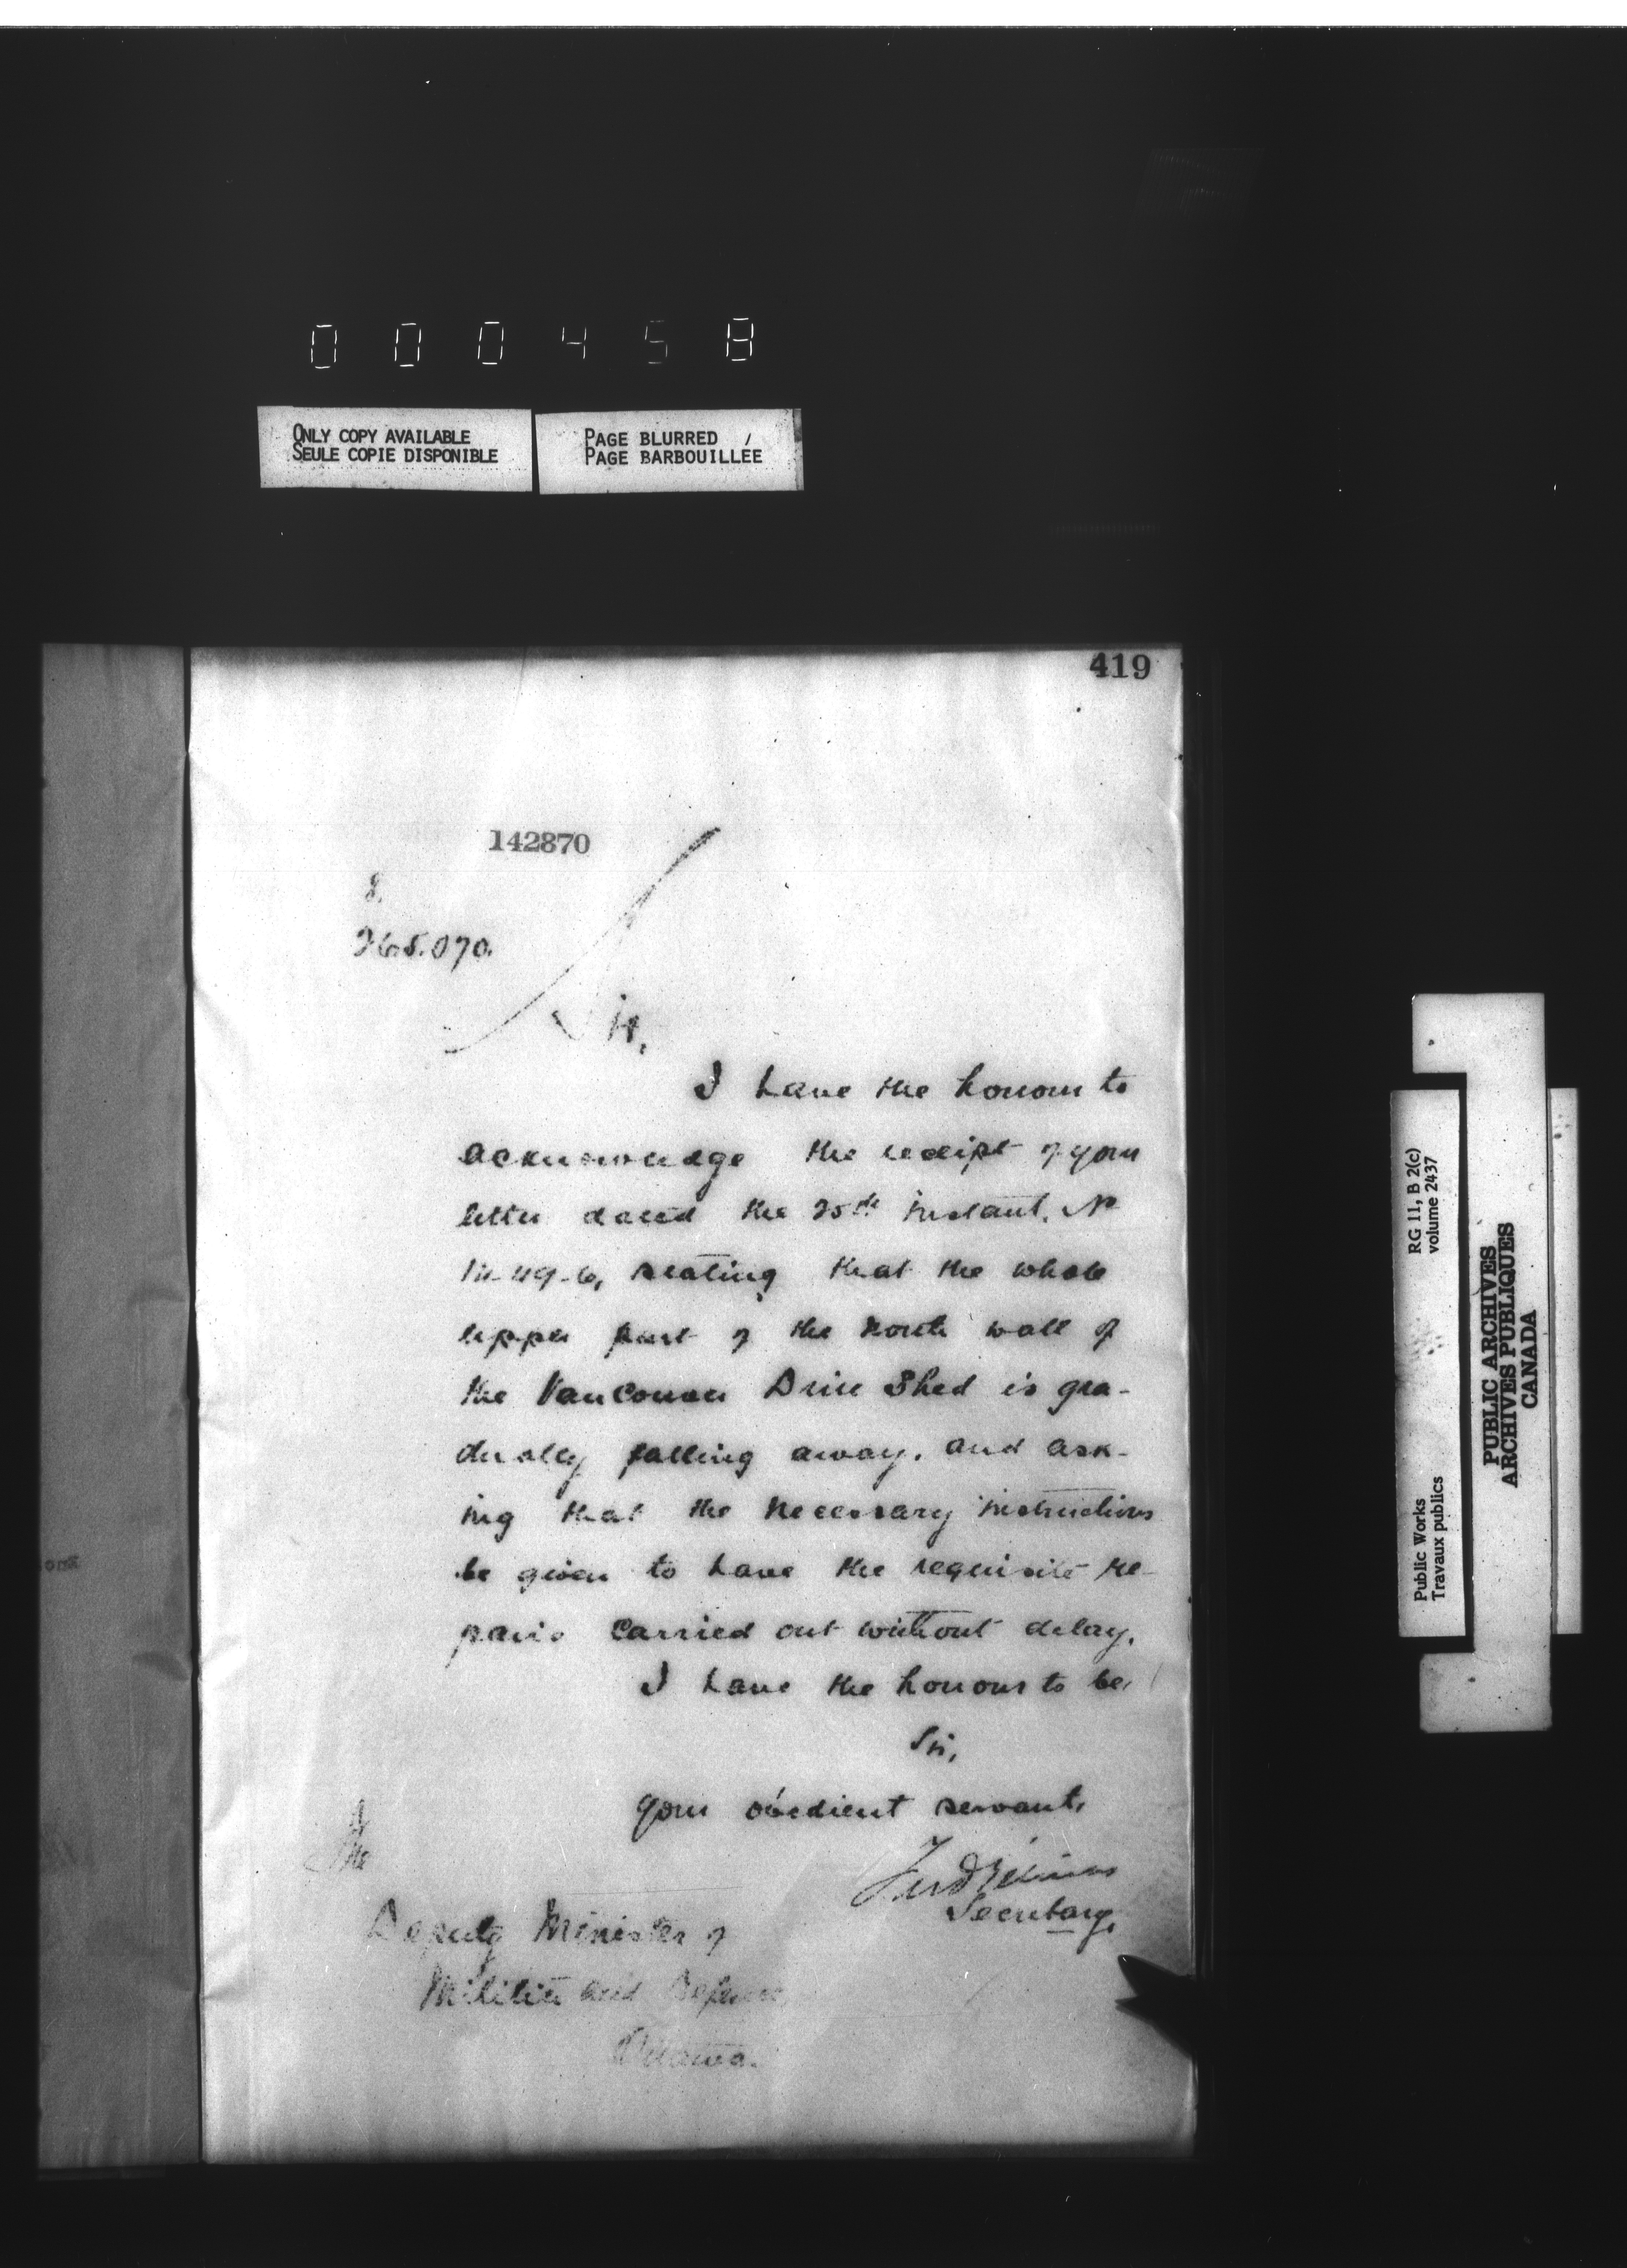 000458
ONLY COPY AVAILABLE
SEULE COPIE DISPONIBLE
PAGE BLURRED
PAGE BARBOUILLÉE
419
142870
8.
265.070.
Sir,
I have the honour to
acknowledge the receipt of your
letter dated the 25th instant, No
stating that the whole
upper part of the North wall of
the Vancouver Drill Shed is gra-
dually falling away, and ask-
ing that the necessary instructions
be given to have the requisite re-
pairs carried out without delay.
I have the honour to be,
Sir,
Your obedient servant,
Secretary,
The
Deputy Minister of
Militia and Defence
Ottawa.
RG 11, B 2(c)
volume 2437
Public Works
Travaux publics
PUBLIC ARCHIVES
ARCHIVES PUBLIQUES
CANADA